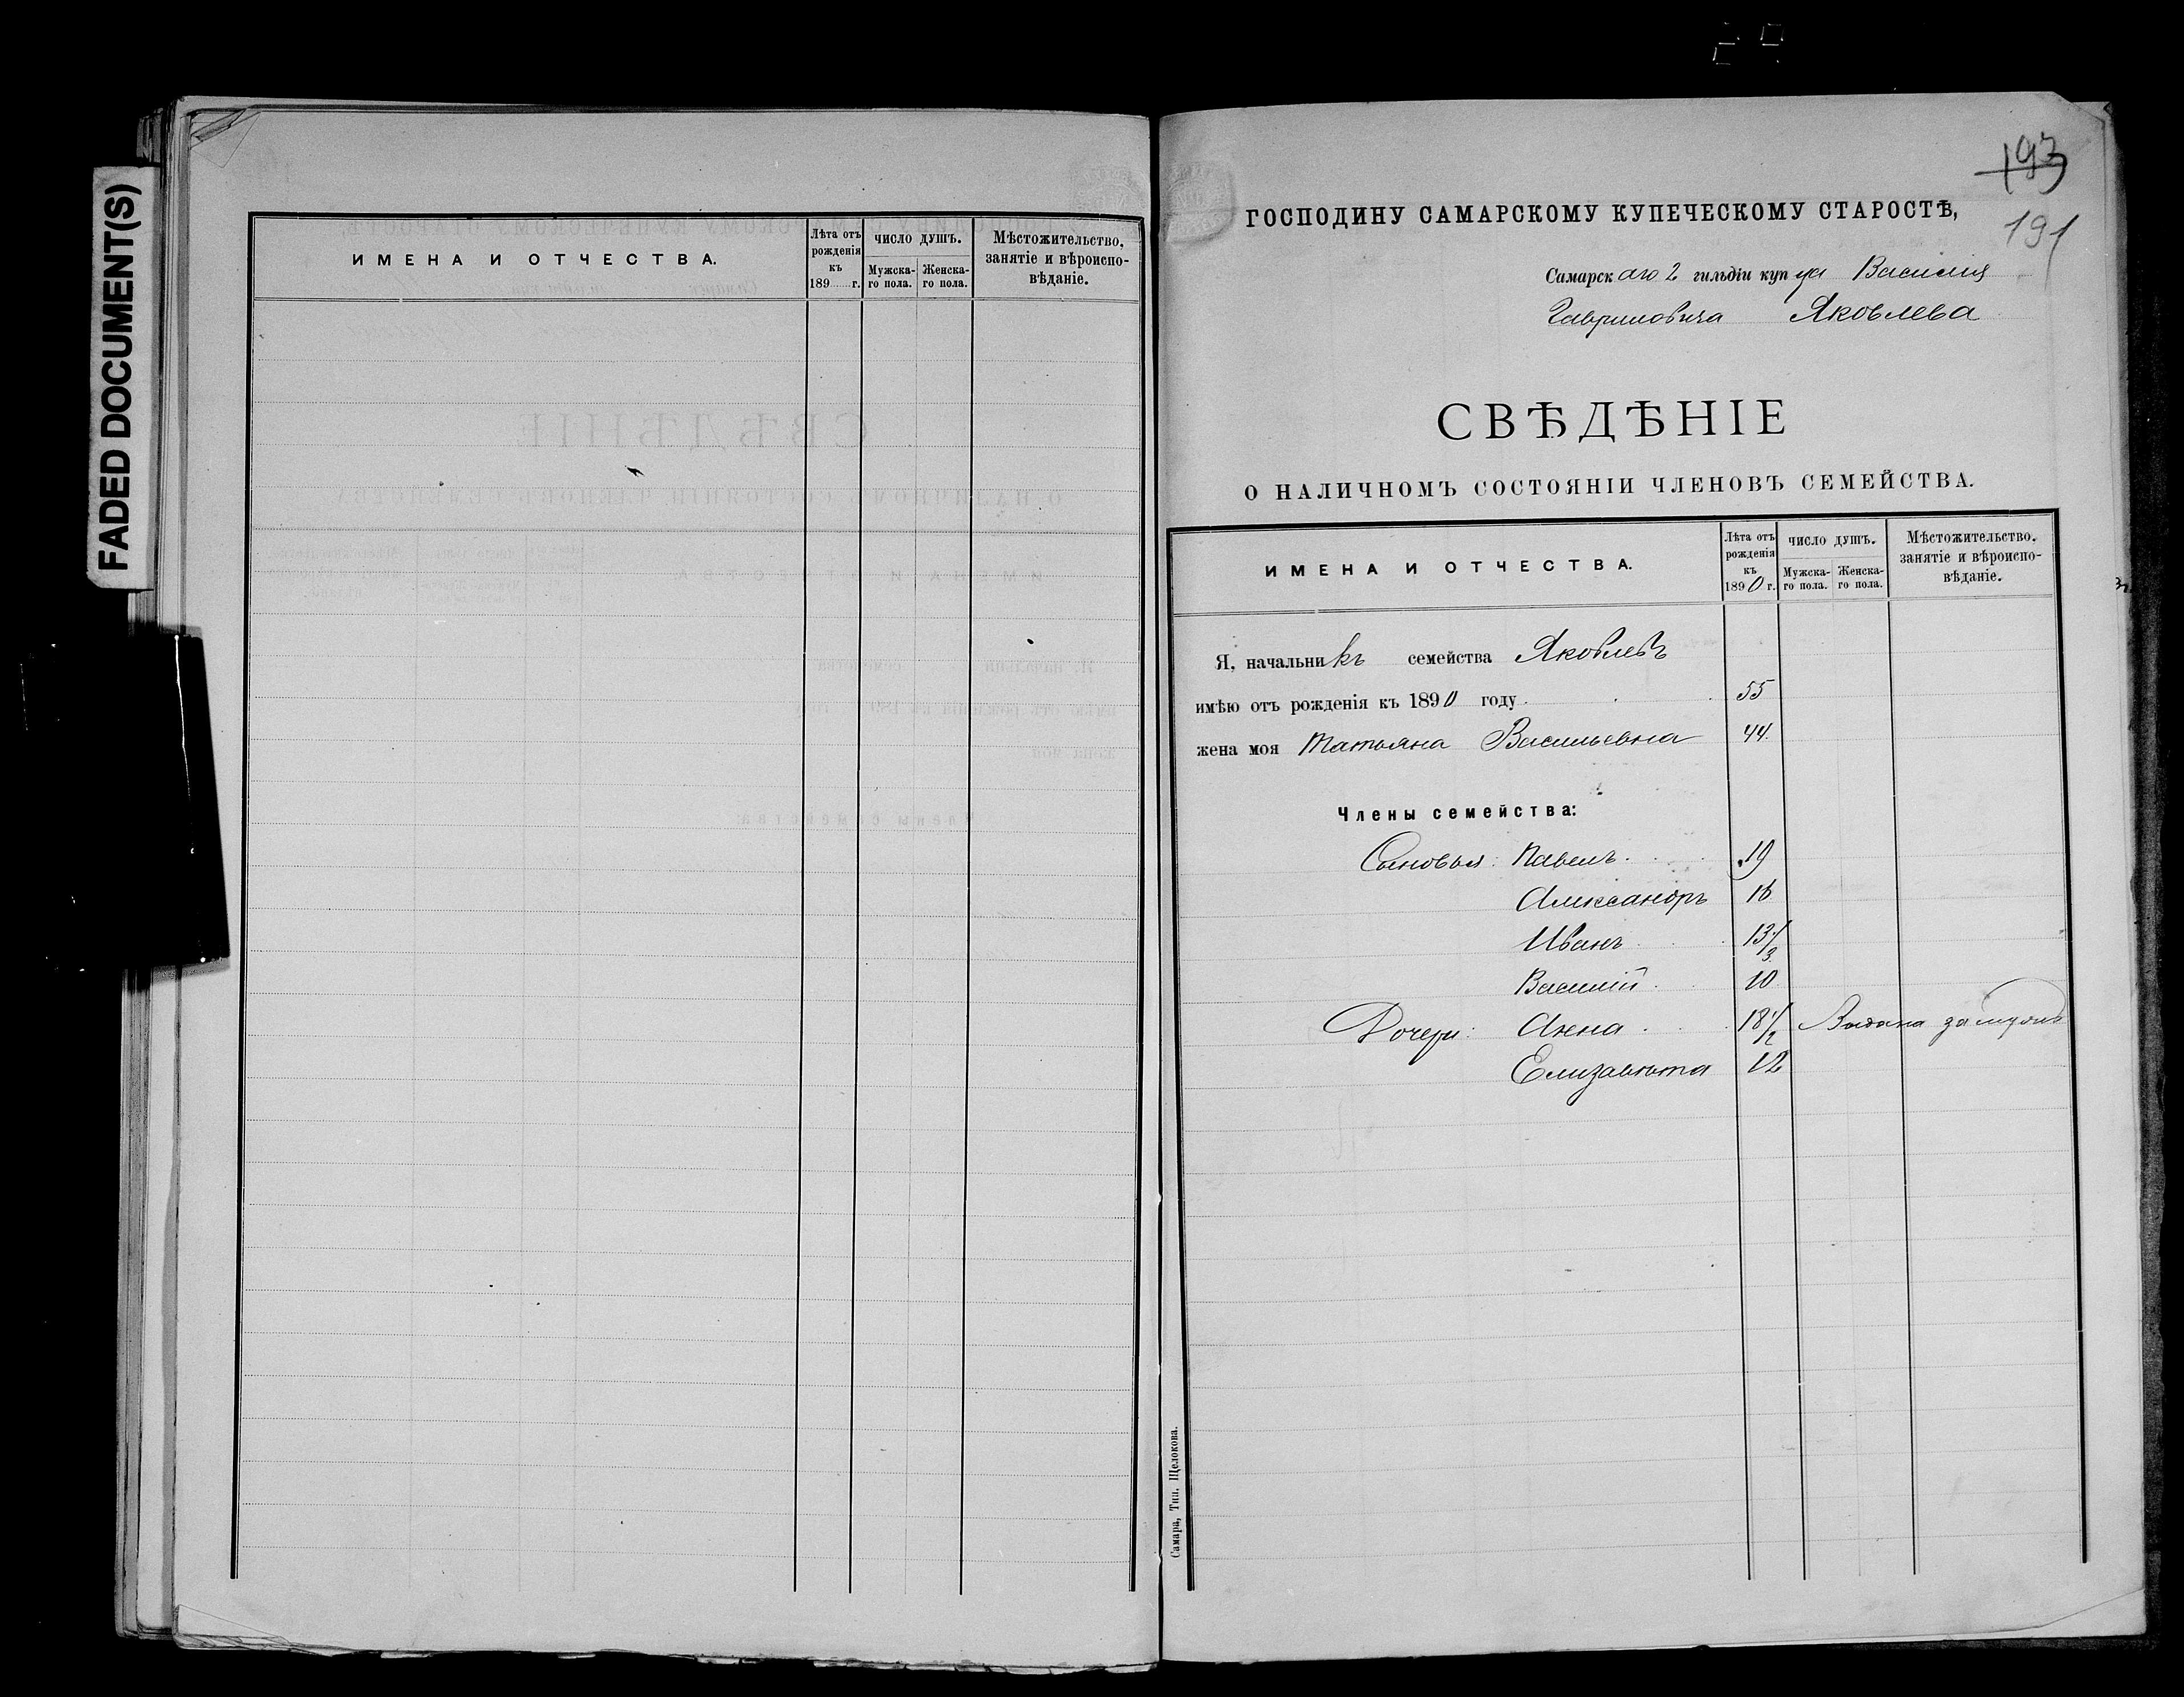 FADED DOCUMENT(S)
ИМЕНА И ОТЧЕСТВА.
Лѣта отъ рожденія къ 189 г.
ЧИСЛО ДУШЪ.
Мужска-го пола.
Женска-го пола.
Мѣстожительство, занятіе и вѣроиспо-вѣданіе.
193
191
ГОСПОДИНУ САМАРСКОМУ КУПЕЧЕСКОМУ СТАРОСТѢ,
Самарскаго 2 гильдіи купца Василия
Гавриловича Яковлева
СВѢДѢНІЕ
О НАЛИЧНОМЪ СОСТОЯНІИ ЧЛЕНОВЪ СЕМЕЙСТВА.
ИМЕНА И ОТЧЕСТВА.
Лѣта отъ рожденія къ 1890 г.
ЧИСЛО ДУШЪ.
Мужска-го пола.
Женска-го пола.
Мѣстожительство. занятіе и вѣроиспо-вѣданіе.
Я, начальникъ семейства Яковлевъ
имѣю отъ рожденія къ 1890 году 55
жена моя Татьяна Васильевна 44
Члены семейства:
Сыновья: Павелъ 19
Александръ 16
Иванъ 13 1/3
Василій 10
Дочери: Анна 18 1/2 Выдана замужъ
Елизавета 12
Самара, Тип. Щелокова.